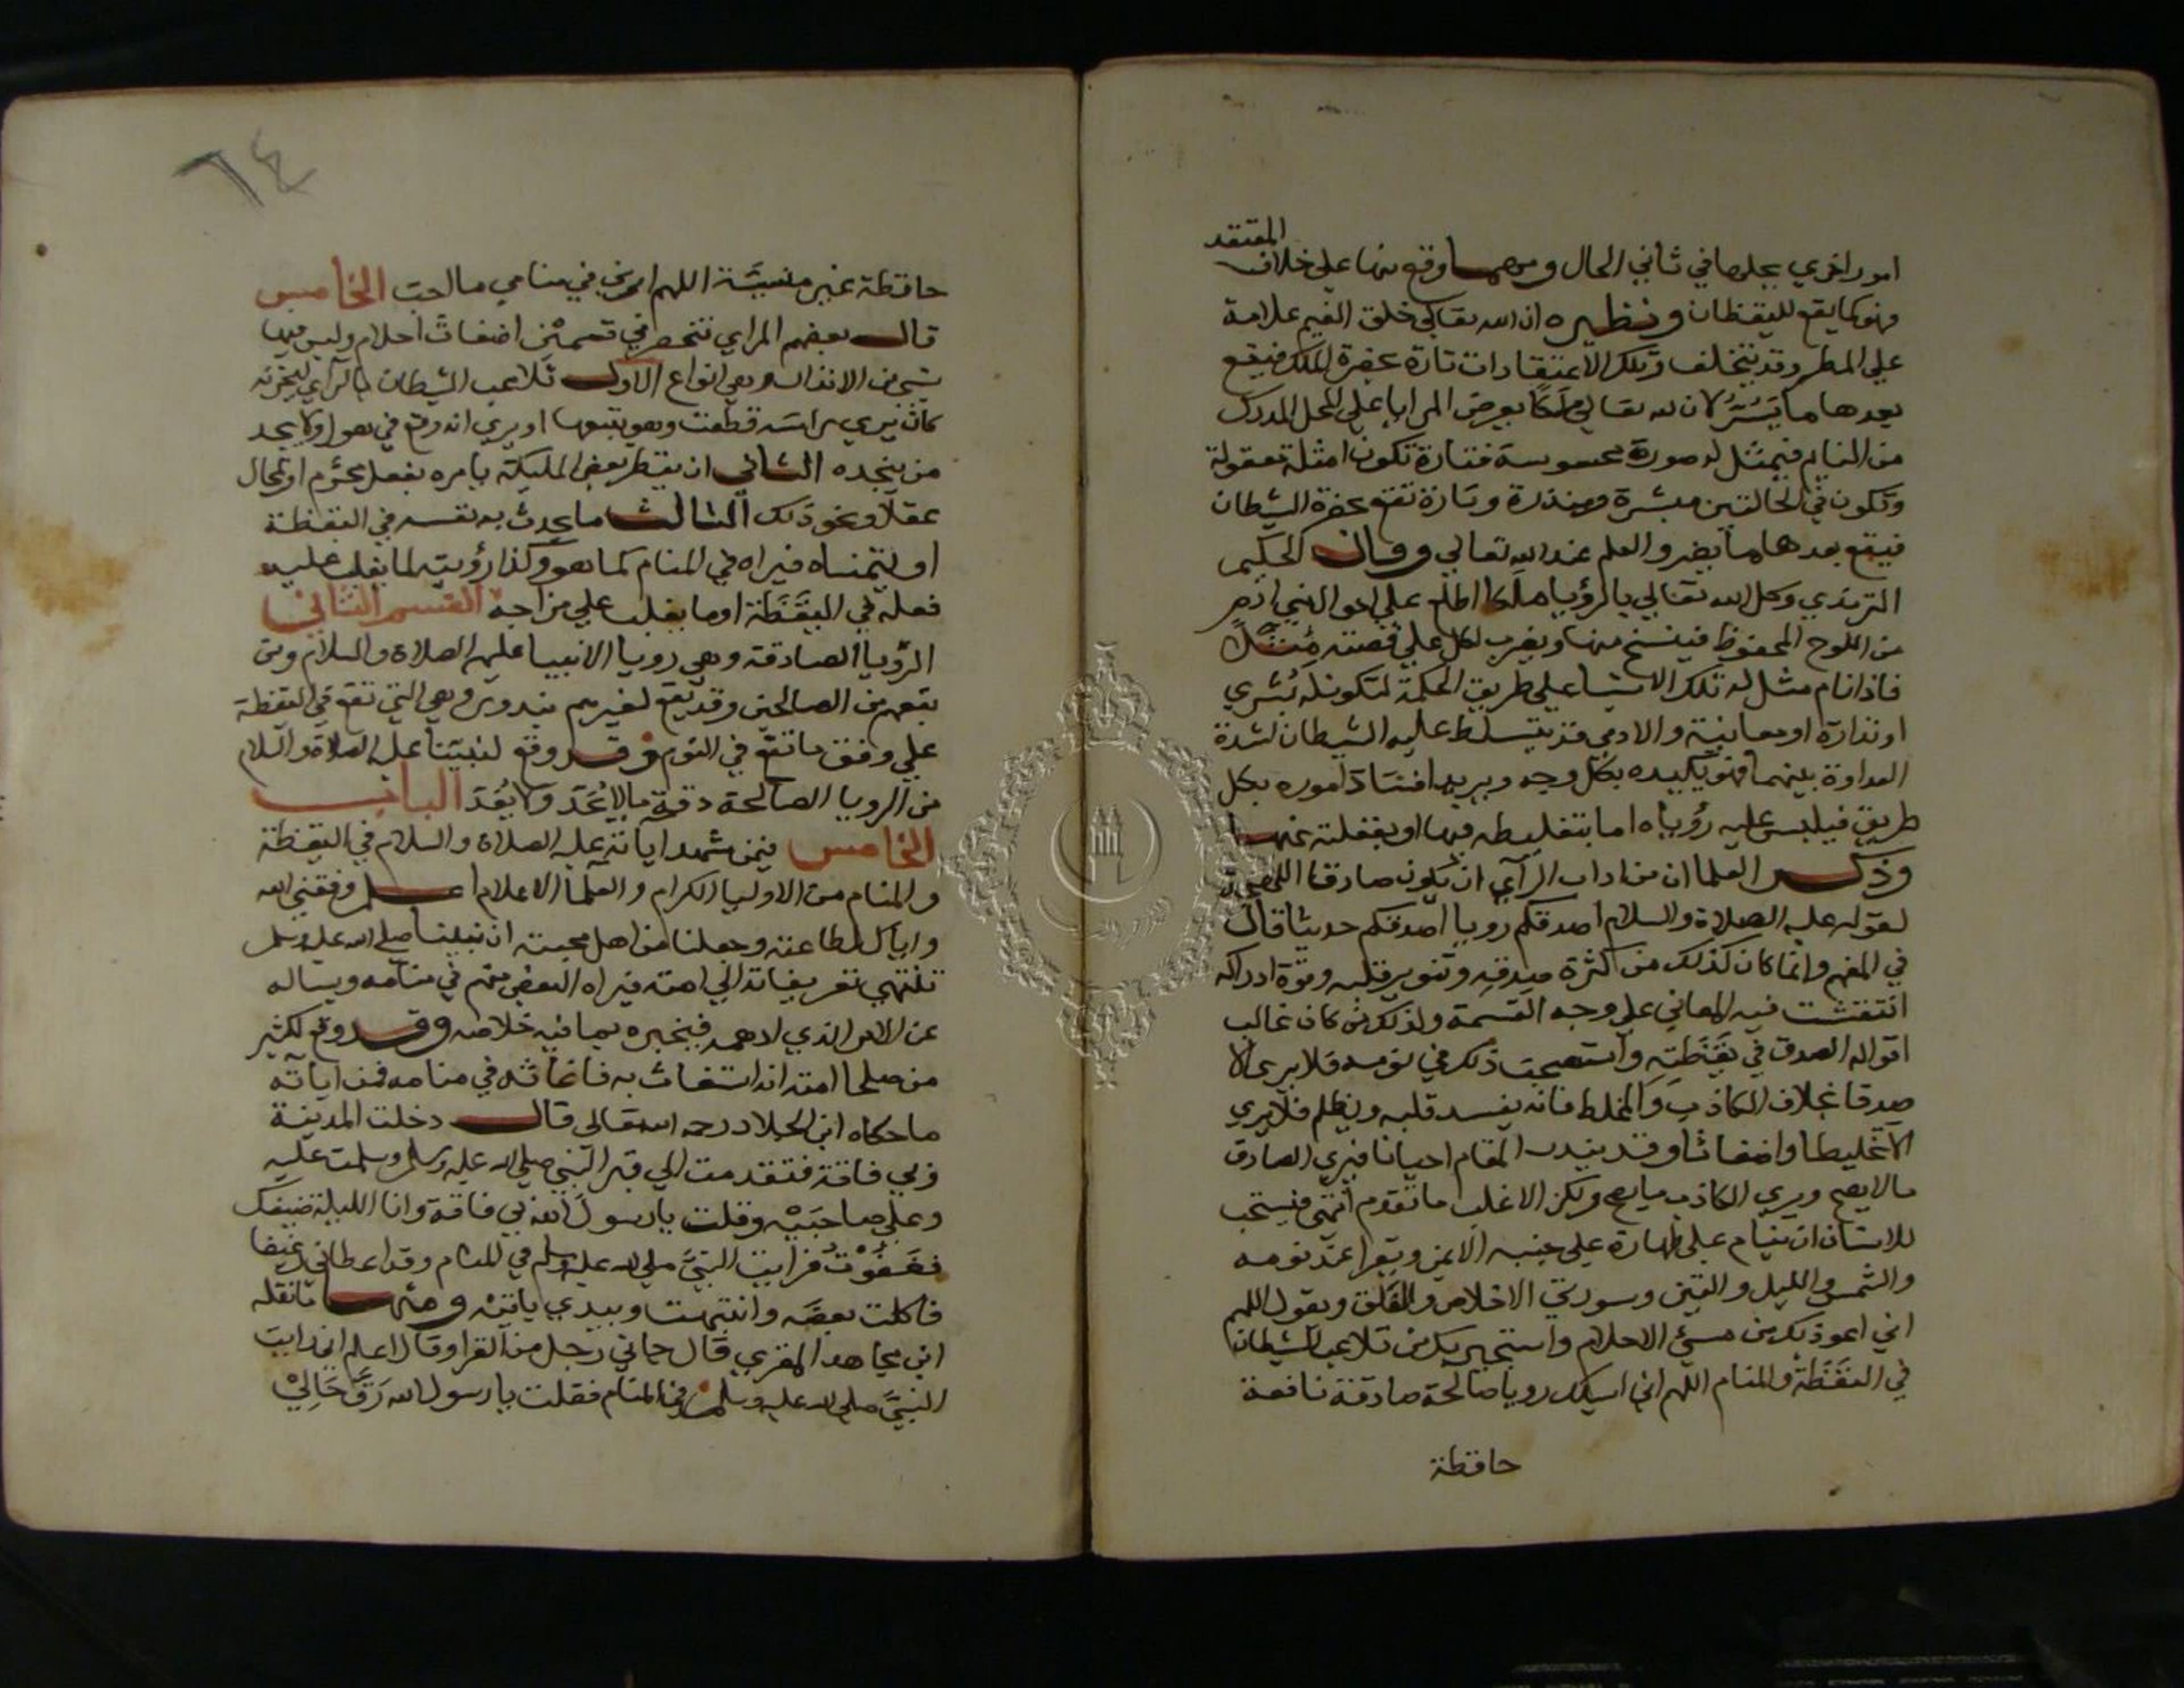 المعتقد
امور اخري يجعلها في ثاني الحال ومهما وقع منها علي خلاف
فهو كما يقع لليقظان ونظيره ان الله تعالي خلق الغيم علامة
علي المطر وقد يتخلف وتلك الاعتقادات تارة بحضرة الملك فيقع
بعدها ما يَسُرُّ لان لله تعالي ملكًا يعرض المرايا علي المحل المدرك
من النايم فيمثل له صورة محسوسة فتارة تكون امثلة معقولة
وتكون في الحالتين مبشرة ومنذرة وتارة تقع بحضرة الشيطان
فيقع بعدها ما يضر والعلم عند الله تعالي وقال الحكيم
الترمذي وكل الله تعالي بالرؤيا ملكا اطلع علي احوال بني ادم
من اللوح المحفوظ فينسخ منها ويضرب لكل علي قصته مثلا
فاذا نام مثل له تلك الاشيا علي طريق الحكمة لتكون له بُشري
او نذارة او معاتبة والادمي قد يتسلط عليه الشيطان لشدة
العداوة بينهما فهو يكيده بكل وجه ويريد افساد اموره بكل
طريق فيلبس عليه رؤياه اما بتغليطه فيها او بغفلته عنها
وذكر العلما ان من اداب الرآي ان يكون صادقا اللهجة
لقوله عليه الصلاة والسلام اصدقكم رويا اصدقكم حديثا قال
في المفهم وانما كان كذلك من كثرة صدقه وتنوير قلبه وقوة ادراكه
انتقشت فيه المعاني علي وجه القسمة ولذلك من كان غالب
اقواله الصدق في يَقَظَتِه واستصحب ذلك في نومه فلا يري الا
صدقا بخلاف الكاذب والمخلط فانه يفسد قلبه ويظلم فلا يري
الا تخليطا واضغاثا وقد يندر المقام احيانا فيري الصادق
مالا يصح ويري الكاذب ما يصح ولكن الاغلب ما تقدم انتهي فيستحب
للانسان ان ينام علي طهارة علي جنبه الايمن ويقرا عند نومه
والشمس والليل والتين وسورتي الاخلاص والفلق ويقول اللهم
اني اعوذ بك من سيئ الاحلام واستجير بك من تلاعب الشيطان
في اليَقَظَة والمنام اللهم اني اسيلك رويا صالحة صادقة نافعة
حافظة
٦٤
حافظة غير منسيَّة اللهم ارني في منامي ما احب الخامس
قال بعضهم المراي تنحصر في قسمين اضغاث احلام وليس فيها
شي من الانذار وهي انواع الاول تلاعب الشيطان بالرآي ليحزنه
كأن يري راسه قطعت وهو يتبعها او يري انه وقع في هول ولا يجد
من ينجده الثاني ان ينظر بعض المليكة يامره بفعل محرم او محال
عقلًا ونحو ذلك الثالث ما يحدث به نفسه في اليقظة
او يتمناه فيراه في المنام كما هو وكذا رؤية ما يغلب عليه
فعله في اليَقَظَة او ما يغلب علي مزاجه القسم الثاني
الرؤيا الصادقة وهي رويا الانبيا عليهم الصلاة والسلام ومن
يتبعهم من الصالحين وقد يقع لغيرهم بندور وهي التي تقع في اليقظة
علي وفق ما تقع في النوم وقد وقع لنبينا عليه الصلاة والسلام
من الرويا الصالحة دقة ما لا يُحَدّ ولا يُعَدّ الباب
الخامس فيمن شهد اياته عليه الصلاة والسلام في اليقظة
والمنام من الاوليا الكرام والعلما الاعلام اعلم وفقني الله
واياك لطاعته وجعلنا من اهل محبته ان نبينا صلي الله عليه وسلم
تنتهي تعريفاته الي امته فيراه البعض منهم في منامه ويساله
عن الامر الذي لاهمه فيخبره بما فيه خلاصه وقد وقع لكثير
من صلحا امته انه استغاث به فاغاثه في منامه فمن اياته
ما حكاه ابن الجلاد رحمه الله تعالي قال دخلت المدينة
وبي فاقة فتقدمت الي قبر النبي صلي الله عليه وسلم وسلمت عليه
وعلي صاحبَيْه وقلت يا رسول الله بي فاقة وانا الليلة ضيفك
فغَفَوْتُ فرايت النبيَّ صلي الله عليه وسلم في المنام وقد اعطاني رغيفا
فاكلت بعضه وانتبهت وبيدي باقيه ومنها ما نقله
ابن مجاهد المقري قال جاني رجل من القرا وقال اعلم اني رايت
النبيَّ صلي الله عليه وسلم في المنام فقلت يا رسول الله رَقَّ حَالِيْ